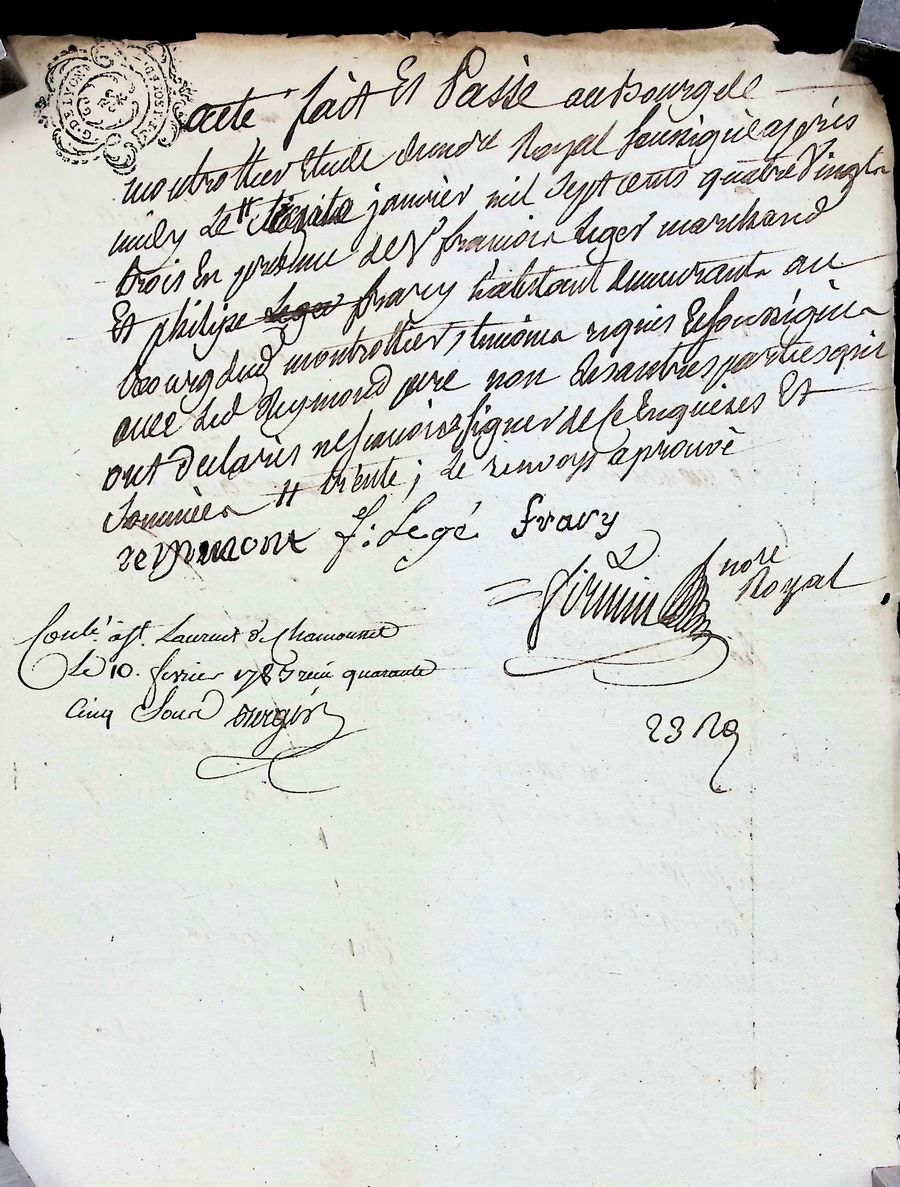 acte fait Et Passé au Bourg de
montrottier Etude du notre Royal soussigné après
midy Le tt trente janvier mil sept cents quatre vingts
trois En presence de Sr francois Leger marchand
Et philipe Leger fravy habitant demeurants au
bourg dud montrottier, temoins requis Et soussignés
avec Led Reymond pere non Les autres parties qui
ont declarés ne scavoir signer de ce Enquises Et
Sommées tt trente ; Le renvoy aprouvé
reymont f: Legé fravy
firmin notre
Royal
Conlé à St Laurent de Chamousset
Le 10. fevrier 1783 reçu quarante
Cinq Sous